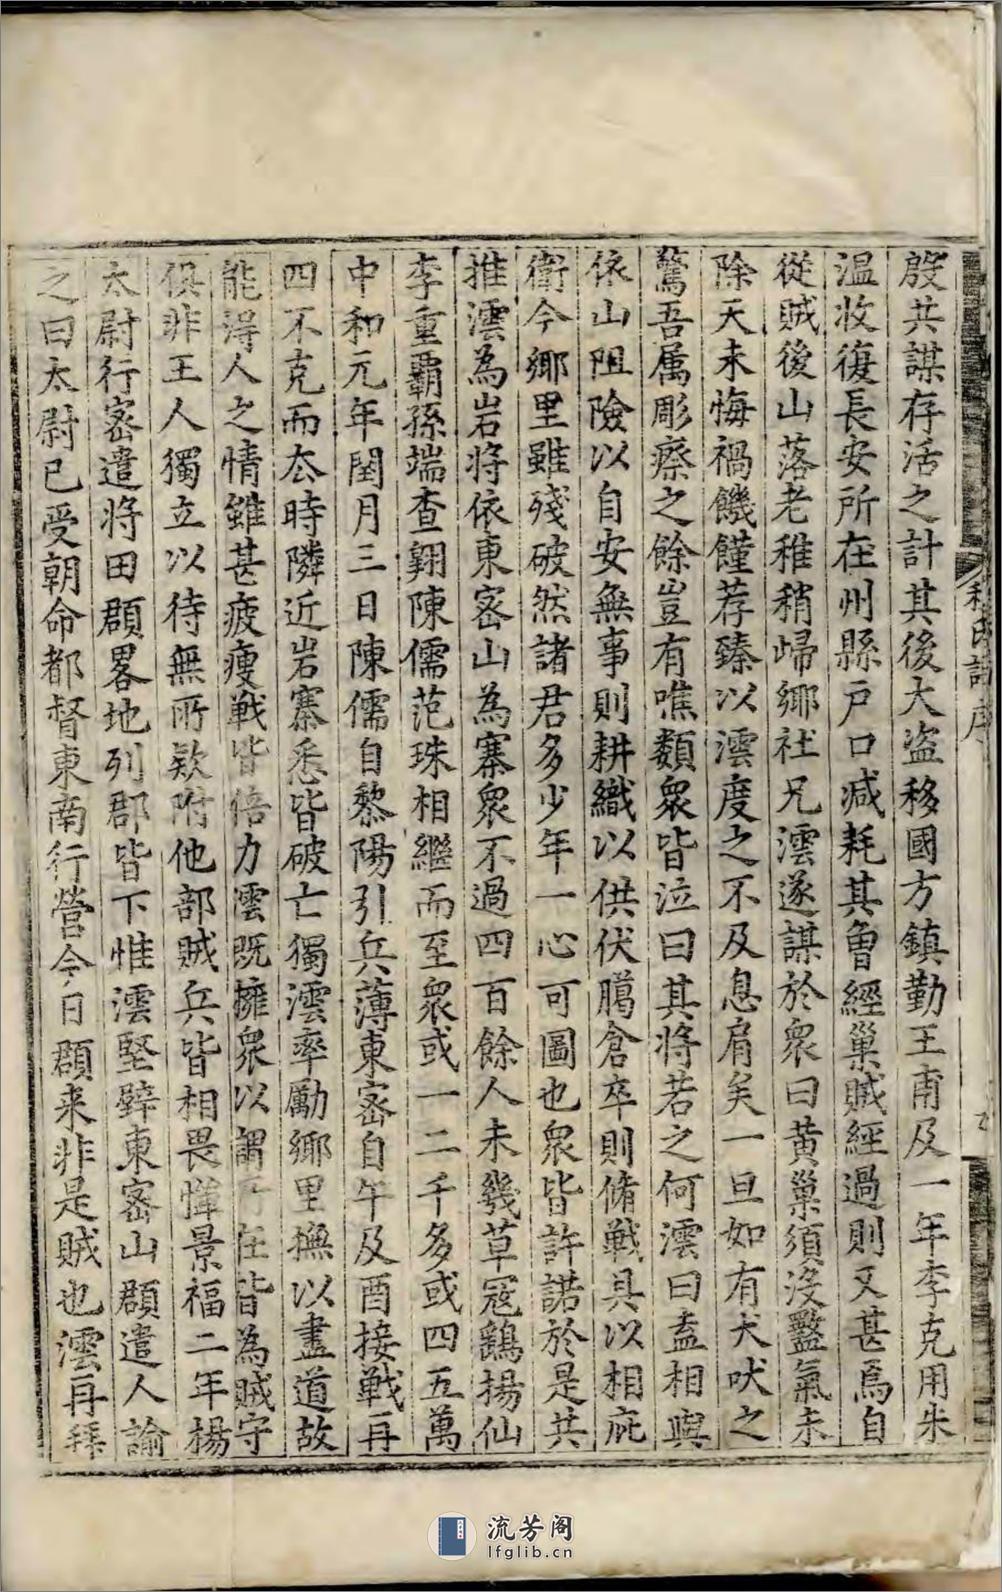 殷共謀存活之計其後大盗移國方鎮勤王甫及一年李克用朱
温收復長安所在州縣户口减耗其魯經巢賊經過則又甚焉自
從賊後山落老稚稍歸鄉社兄澐遂謀於衆曰黄巢須没盭氣未
除天未悔禍饑饉荐臻以澐度之不及息肩矣一旦如有犬吠之
驚吾属彫瘵之餘豈有噍類衆皆泣曰其將若之何澐曰盍相與
依山阻險以自安無事則耕織以供伏臈倉卒則脩戦具以相庇
衛今鄉里雖殘破然諸君多少年一心可圖也衆皆許諾於是共
推澐為岩將依東宻山為寨衆不過四百餘人未幾草寇鷂揚仙
李重霸孫端查翶陳儒范珠相繼而至衆或一二千多或四五萬
中和元年閏月三日陳儒自黎陽引兵薄東宻自午及酉接戦再
四不克而去時隣近岩寨悉皆破亡獨澐率勵鄉里撫以盡道故
能得人之情雖甚疲瘦戰皆倍力澐既擁衆以謂所在皆為賊守
俱非王人獨立以待無所欵附他部賊兵皆相畏憚景福二年楊
太尉行宻遣將田頵畧地列郡皆下惟澐堅壁東宻山頵遣人諭
之曰太尉已受朝命都督東南行營今日頵来非是賊也澐再拜
程氏譜序
流芳阁
lfglib.cn